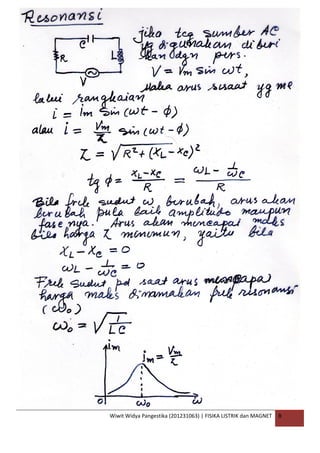 Resonansi
C
R
L
V
jika teg sumber AC
yg digunakan diberi
kan dgn pers.
V = Vm sin ωt,
Maka arus sesaat yg me
lalui rangkaian
i = im sin (ωt - φ)
atau i = Vm/Z sin (ωt - φ)
Z = √R² + (XL - XC)²
tg φ = XL - XC / R = ωL - 1/ωC / R
Bila frek sudut ω berubah, arus akan
berubah pula baik amplitudo maupun
fase nya. Arus akan mencapai maks
bila harga Z minimum, yaitu bila
XL - XC = 0
ωL - 1/ωC = 0
Frek sudut pd saat arus mencapai
harga maks dinamakan frek risonansi
(ω₀)
ω₀ = √1/LC
im
im = Vm/Z
0 ω₀ ω
Wiwit Widya Pangestika (201231063) | FISIKA LISTRIK dan MAGNET